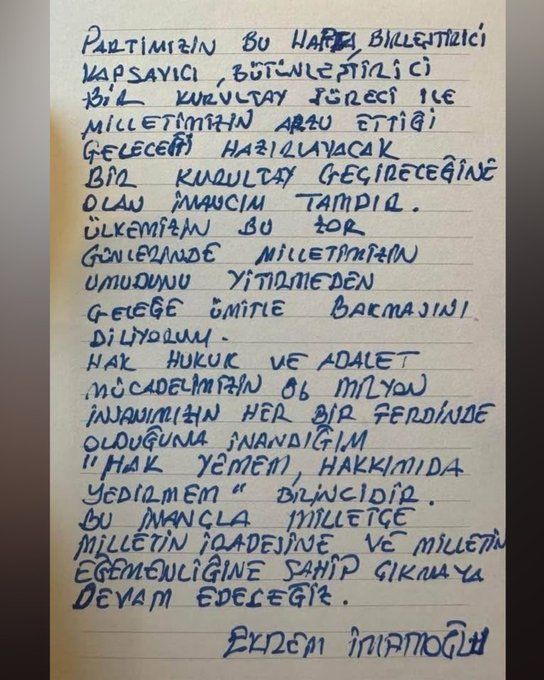 PARTİMİZİN BU HAFTA, BİRLEŞTİRİCİ
KAPSAYICI, BÜTÜNLEŞTİRİCİ
BİR KURULTAY SÜRECİ İLE
MİLLETİMİZİN ARZU ETTİĞİ
GELECEĞİ HAZIRLAYACAK
BİR KURULTAY GEÇİRECEĞİNE
OLAN İNANCIM TAMDIR.
ÜLKEMİZİN BU ZOR
GÜNLERİNDE MİLLETİMİZİN
UMUDUNU YİTİRMEDEN
GELEĞE ÜMİTLE BAKMASINI
DİLİYORUM.
HAK HUKUK VE ADALET
MÜCADELİMİZİN 86 MİLYON
İNSANIMIZIN HER BİR FERDİNDE
OLDUĞUNA İNANDIĞIM
"HAK YEMEM, HAKKIMIDA
YEDİRMEM" BİLİNCİDİR.
BU İNANÇLA MİLLETÇE
MİLLETİN İRADESİNE VE MİLLETİN
EGEMENLİĞİNE SAHİP ÇIKMAYA
DEVAM EDECEĞİZ.
EKREM İMAMOĞLU